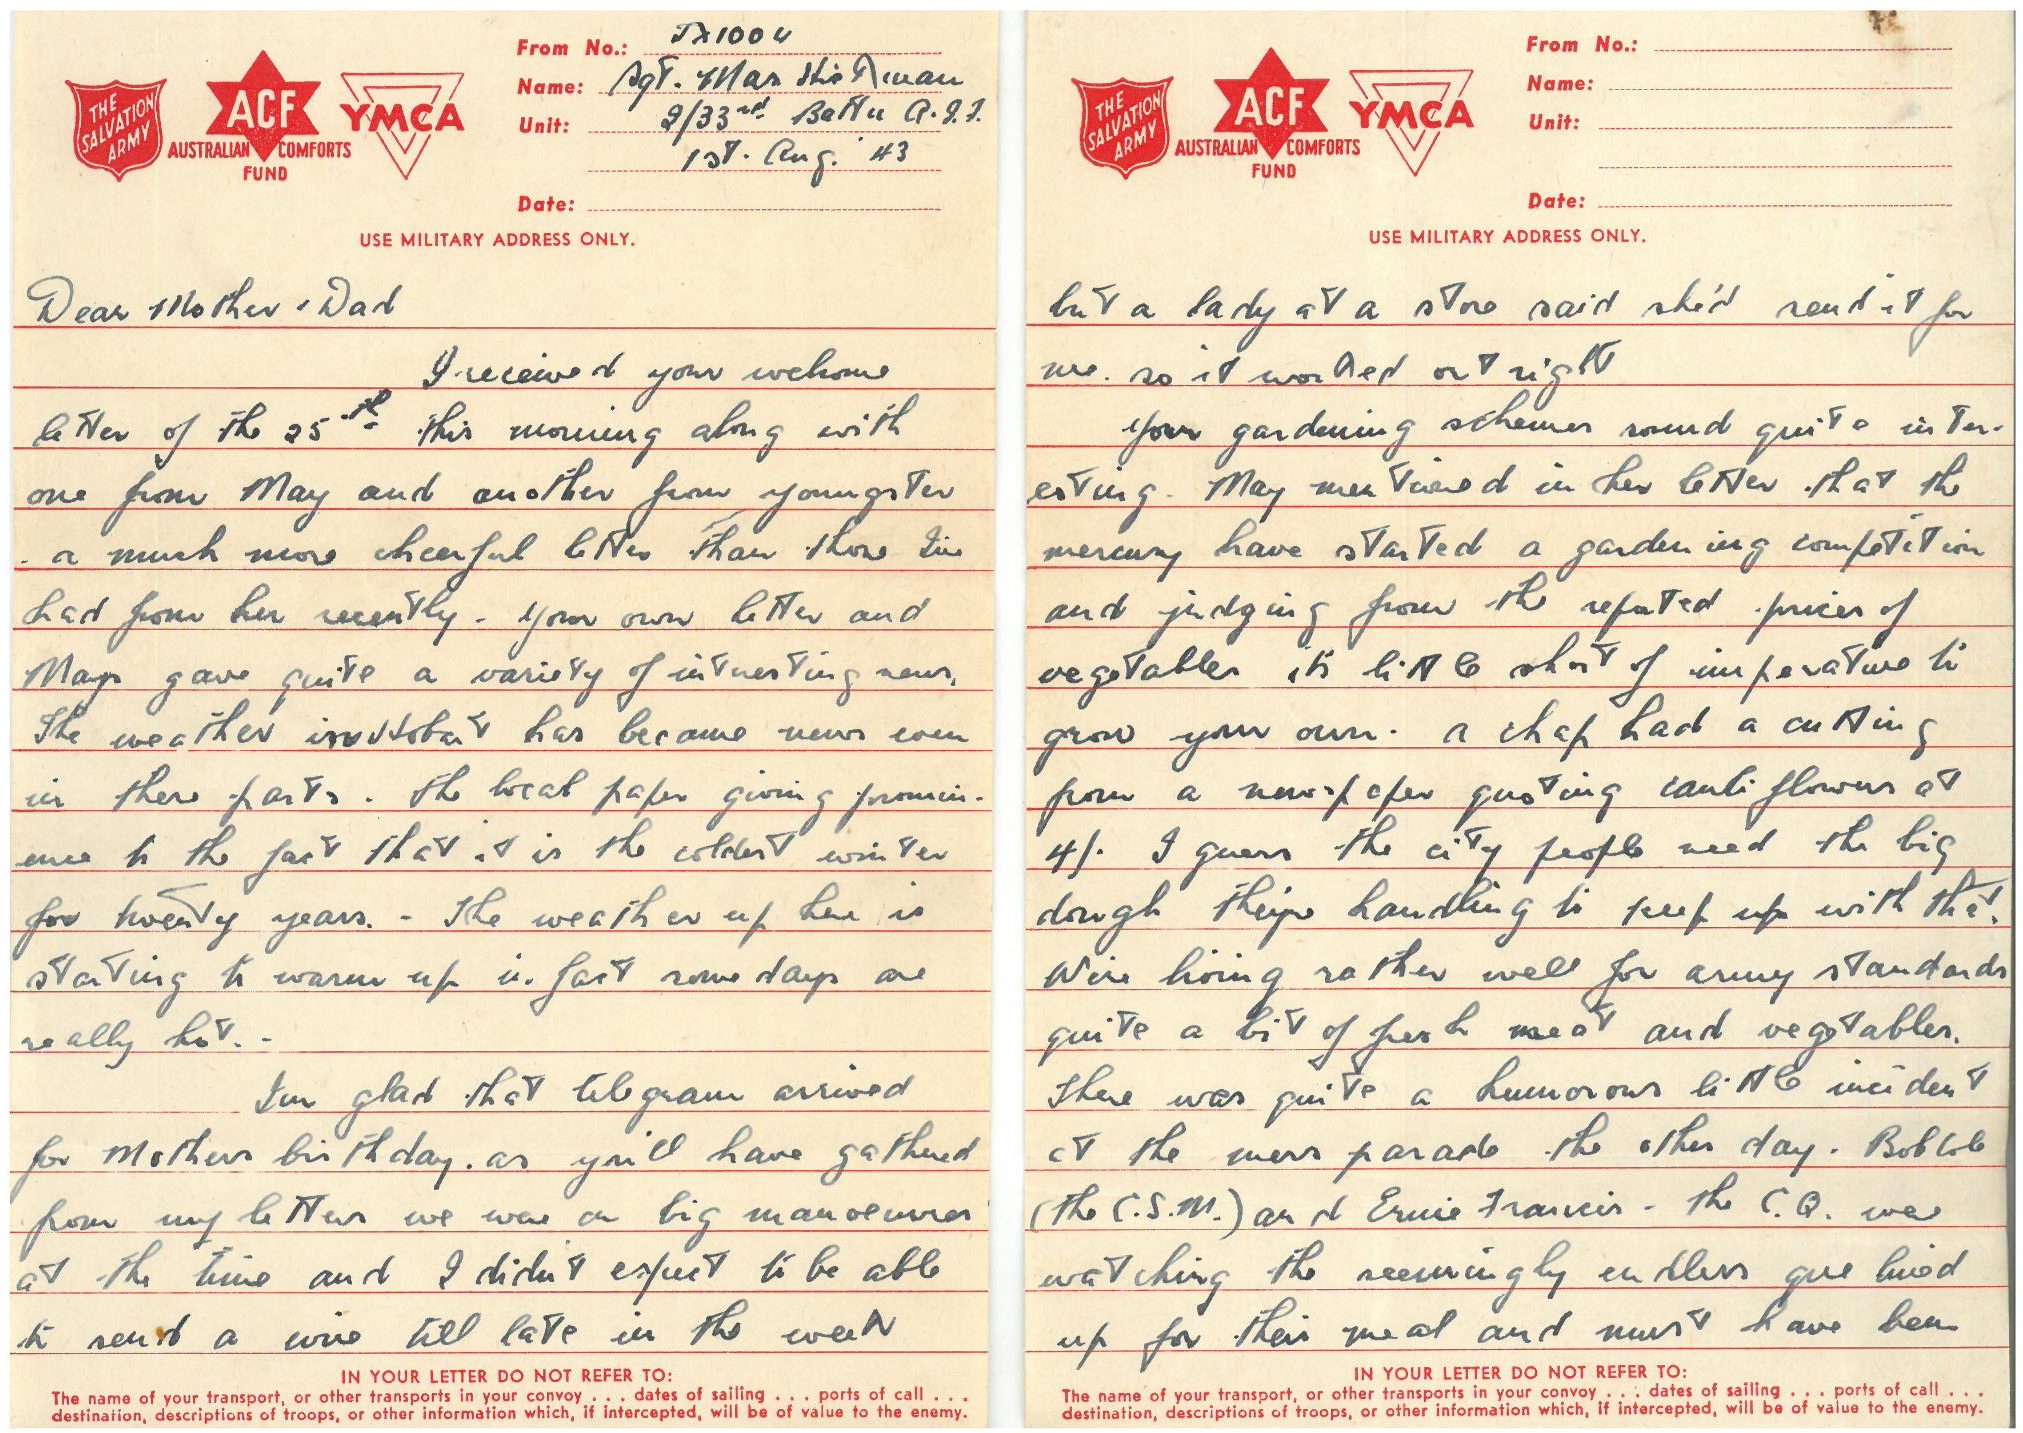 THE
SALVATION
ARMY
ACF
AUSTRALIAN COMFORTS
FUND
YMCA
From No.: TX1004
Name: Sgt. Max
Unit: 2/33rd. Battn A.I.F.
1st. Aug. '43
Date:
USE MILITARY ADDRESS ONLY.
Dear Mother & Dad
I received your welcome
letter of the 25th. this morning along with
one from May and another from youngster
- a much more cheerful letter than those I've
had from her recently. Your own letter and
Mays gave quite a variety of interesting news.
The weather in Hobart has become news even
in these parts. The local paper giving promin-
ence to the fact that it is the coldest winter
for twenty years. - The weather up here is
starting to warm up in fact some days are
really hot. -
I'm glad that telegram arrived
for Mothers birthday. as you'll have gathered
from my letters we were on big manoeuvres
at the time and I didn't expect to be able
to send a wire till late in the week
IN YOUR LETTER DO NOT REFER TO:
The name of your transport, or other transports in your convoy . . . dates of sailing . . . ports of call . . .
destination, descriptions of troops, or other information which, if intercepted, will be of value to the enemy.
THE
SALVATION
ARMY
ACF
AUSTRALIAN COMFORTS
FUND
YMCA
From No.:
Name:
Unit:
Date:
USE MILITARY ADDRESS ONLY.
but a lady at a store said she'd send it for
me. so it worked out right
Your gardening schemes sound quite inter-
esting. May mentioned in her letter that the
mercury have started a gardening competition
and judging from the reputed prices of
vegetables it's little short of imperative to
grow your own. A chap had a cutting
from a newspaper quoting cauliflowers at
4/. I guess the city people need the big
dough they're handling to keep up with that.
We're living rather well for army standards
quite a bit of fresh meat and vegetables.
There was quite a humorous little incident
at the mess parade the other day. Bob Cole
(the C.S.M.) and Ernie Francis - the C.Q. were
watching the seemingly endless que lined
up for their meal and must have been
IN YOUR LETTER DO NOT REFER TO:
The name of your transport, or other transports in your convoy . . . dates of sailing . . . ports of call . . .
destination, descriptions of troops, or other information which, if intercepted, will be of value to the enemy.